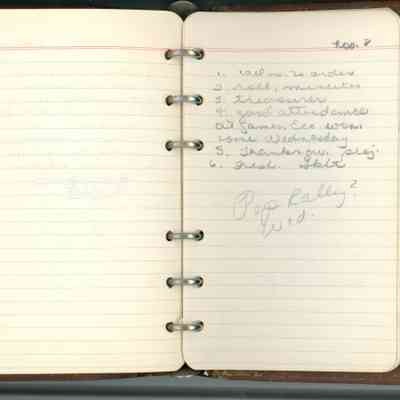 Nov. 8
1. Call m. to order
2. roll, minutes
3. treasurer
4. good attendance
at games, Ecc won
one Wednesday
5. Thanksgiv. proj.
6.
Pep Rally?
Wed.